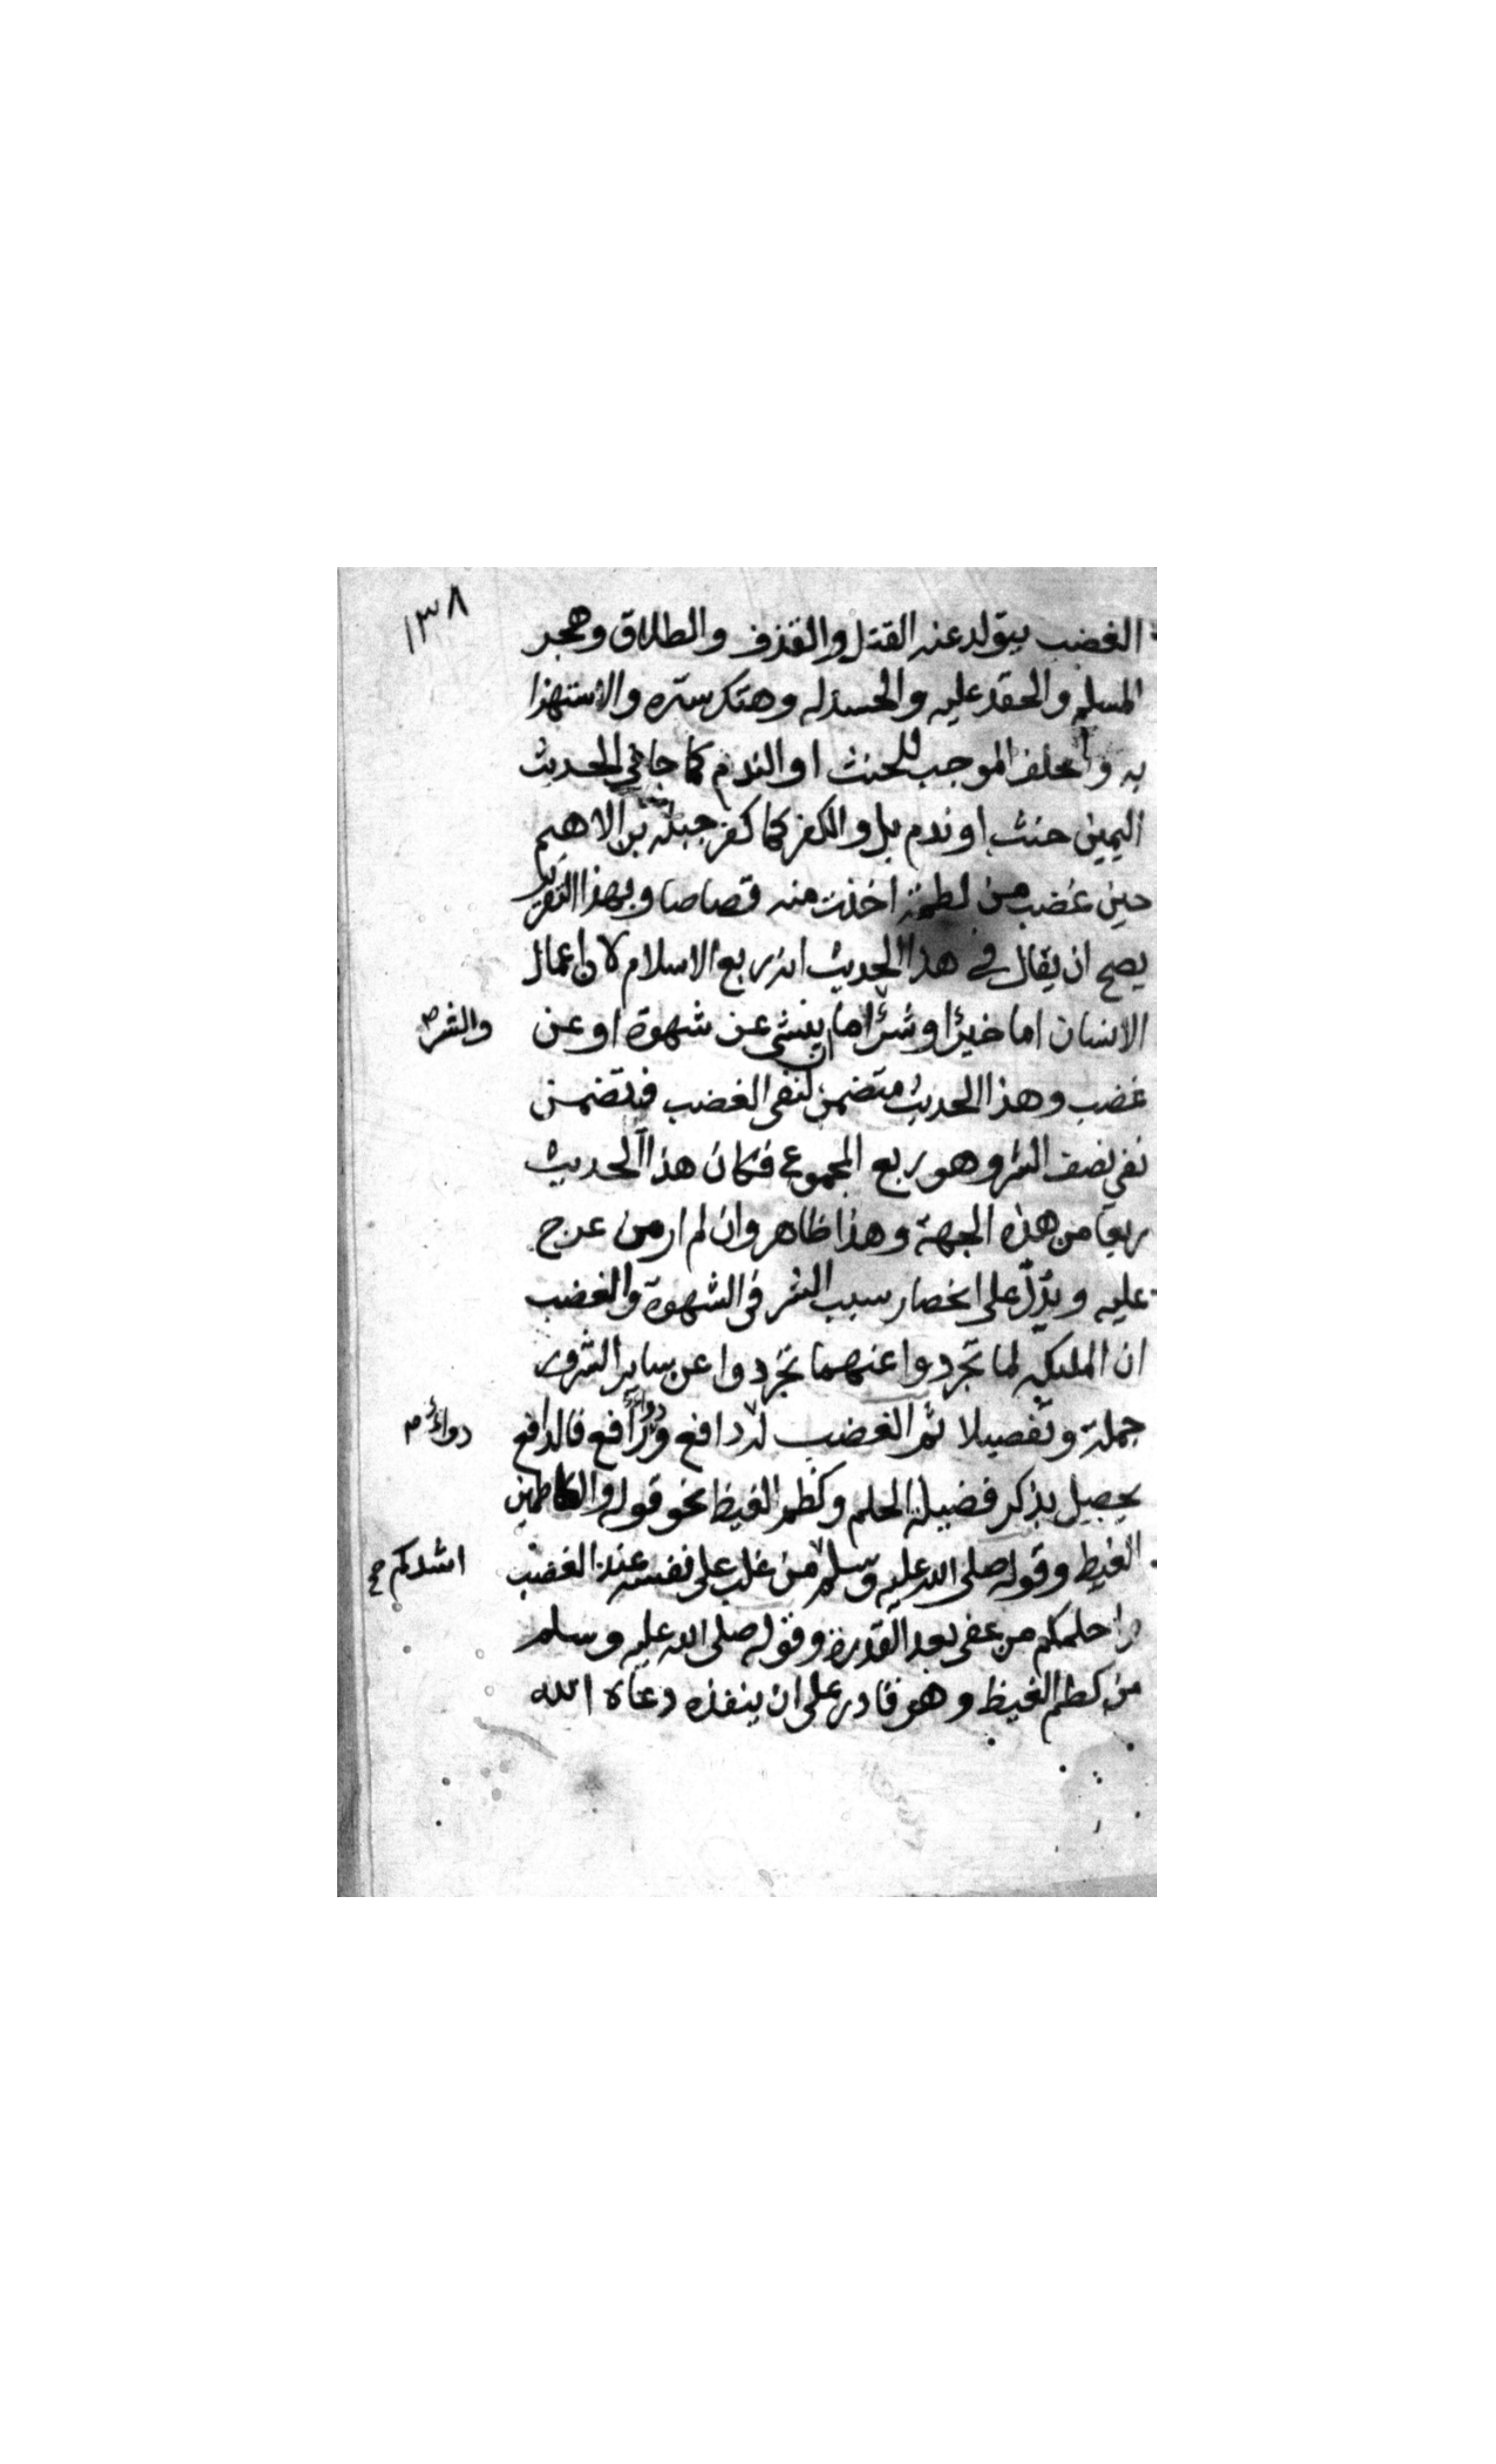 ١٣٨
الغضب يتولد عنه القتل والقذف والطلاق وهجر
المسلم والحقد عليه والحسد له وهتك ستره والاستهزا
به والحلف الموجب للحنث او الندم كما جا في الحديث
اليمين حنث او ندم بل والكفر كما كفر جبلة بن الاهيم
حين غضب من لطمة اخذت منه قصاصا وبهذا التقرير
يصح ان يقال في هذا الحديث انه ربع الاسلام لان اعمال
الانسان اما خيرًا وشرًا اما ينشى عن شهوة او عن
والشر م
غضب وهذا الحديث متضمن لنفى الغضب فتضمن
نفي نصف الشر وهو ربع المجموع فكان هذا الحديث
ربعا من هذه الجهة وهذا ظاهر وان لم ار من عرج
عليه ويدلّ على انحصار سبب الشر فى الشهوة والغضب
ان المليكة لما تجردوا عنهما تجردوا عن ساير الشرور
جملة وتفصيلا ثم الغضب له دافع ورافع فالدافع
دواء م
يحصل بذكر فضيلة الحلم وكظم الغيظ نحو قوله والكاظمين
الغيظ وقوله صلى الله عليه وسلم من غلب على نفسه عند الغضب
اشدكم صح
واحلمكم من عفى بعد القدرة وقوله صلى الله عليه وسلم
من كظم الغيظ وهو قادر على ان ينفذه دعاه الله